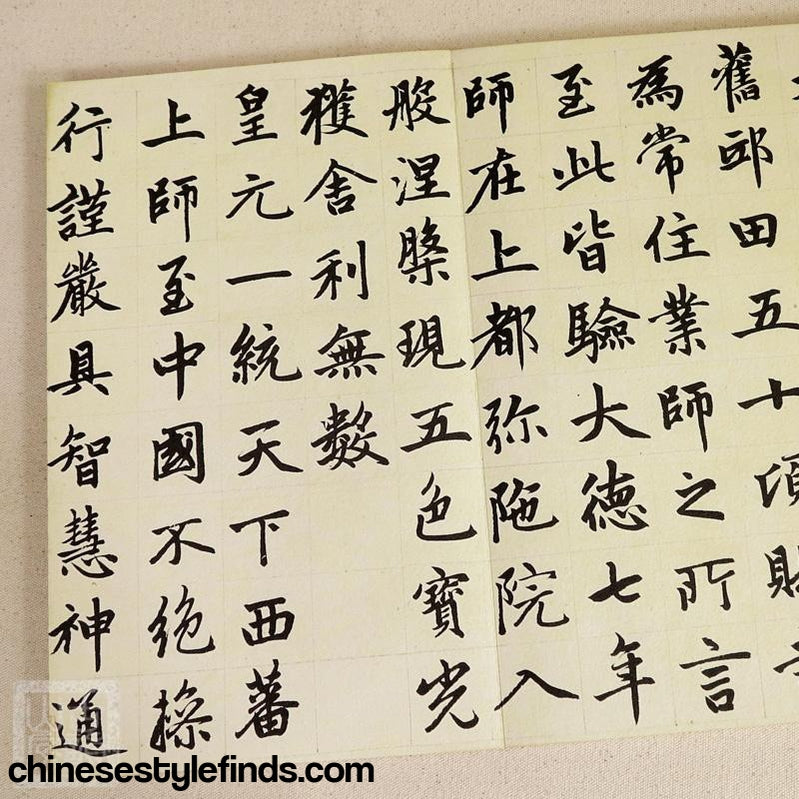 舊邱田五十頃賜
為常住業師之所言
至此皆驗大德七年
師在上都彌陁院入
般涅槃現五色寶光
獲舍利無數
皇元一統天下西蕃
上師至中國不絕操
行謹嚴具智慧神通
chinesestylefinds.com